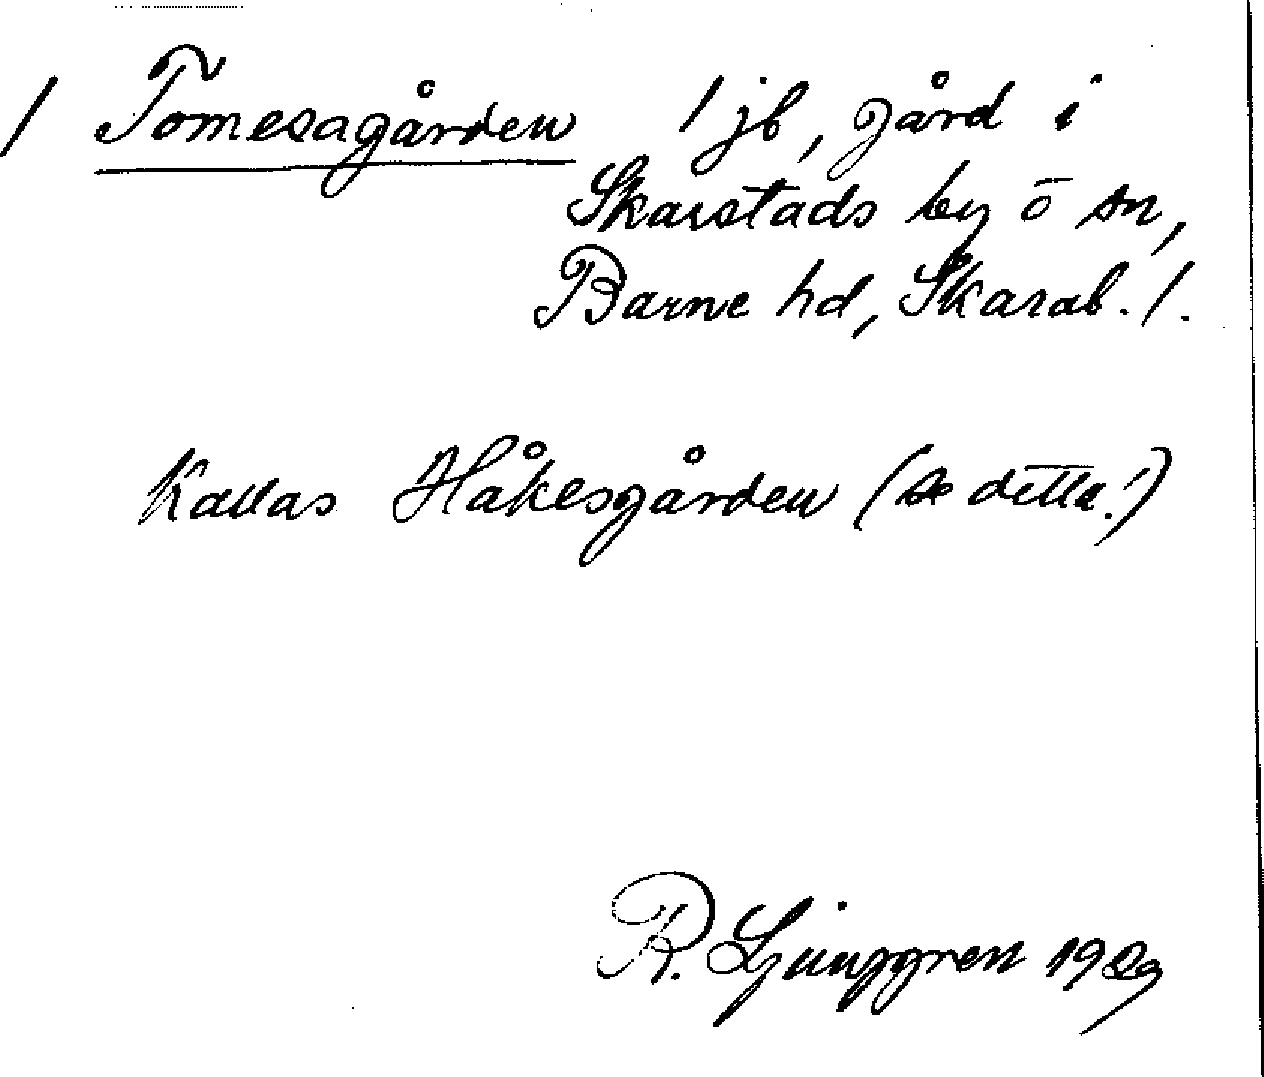 / Tomesagården / jb, gård i
Skarstads by o sn,
Barne hd, Skarab. l.
Kallas Håkesgården (se detta!)
R. Ljunggren 1929